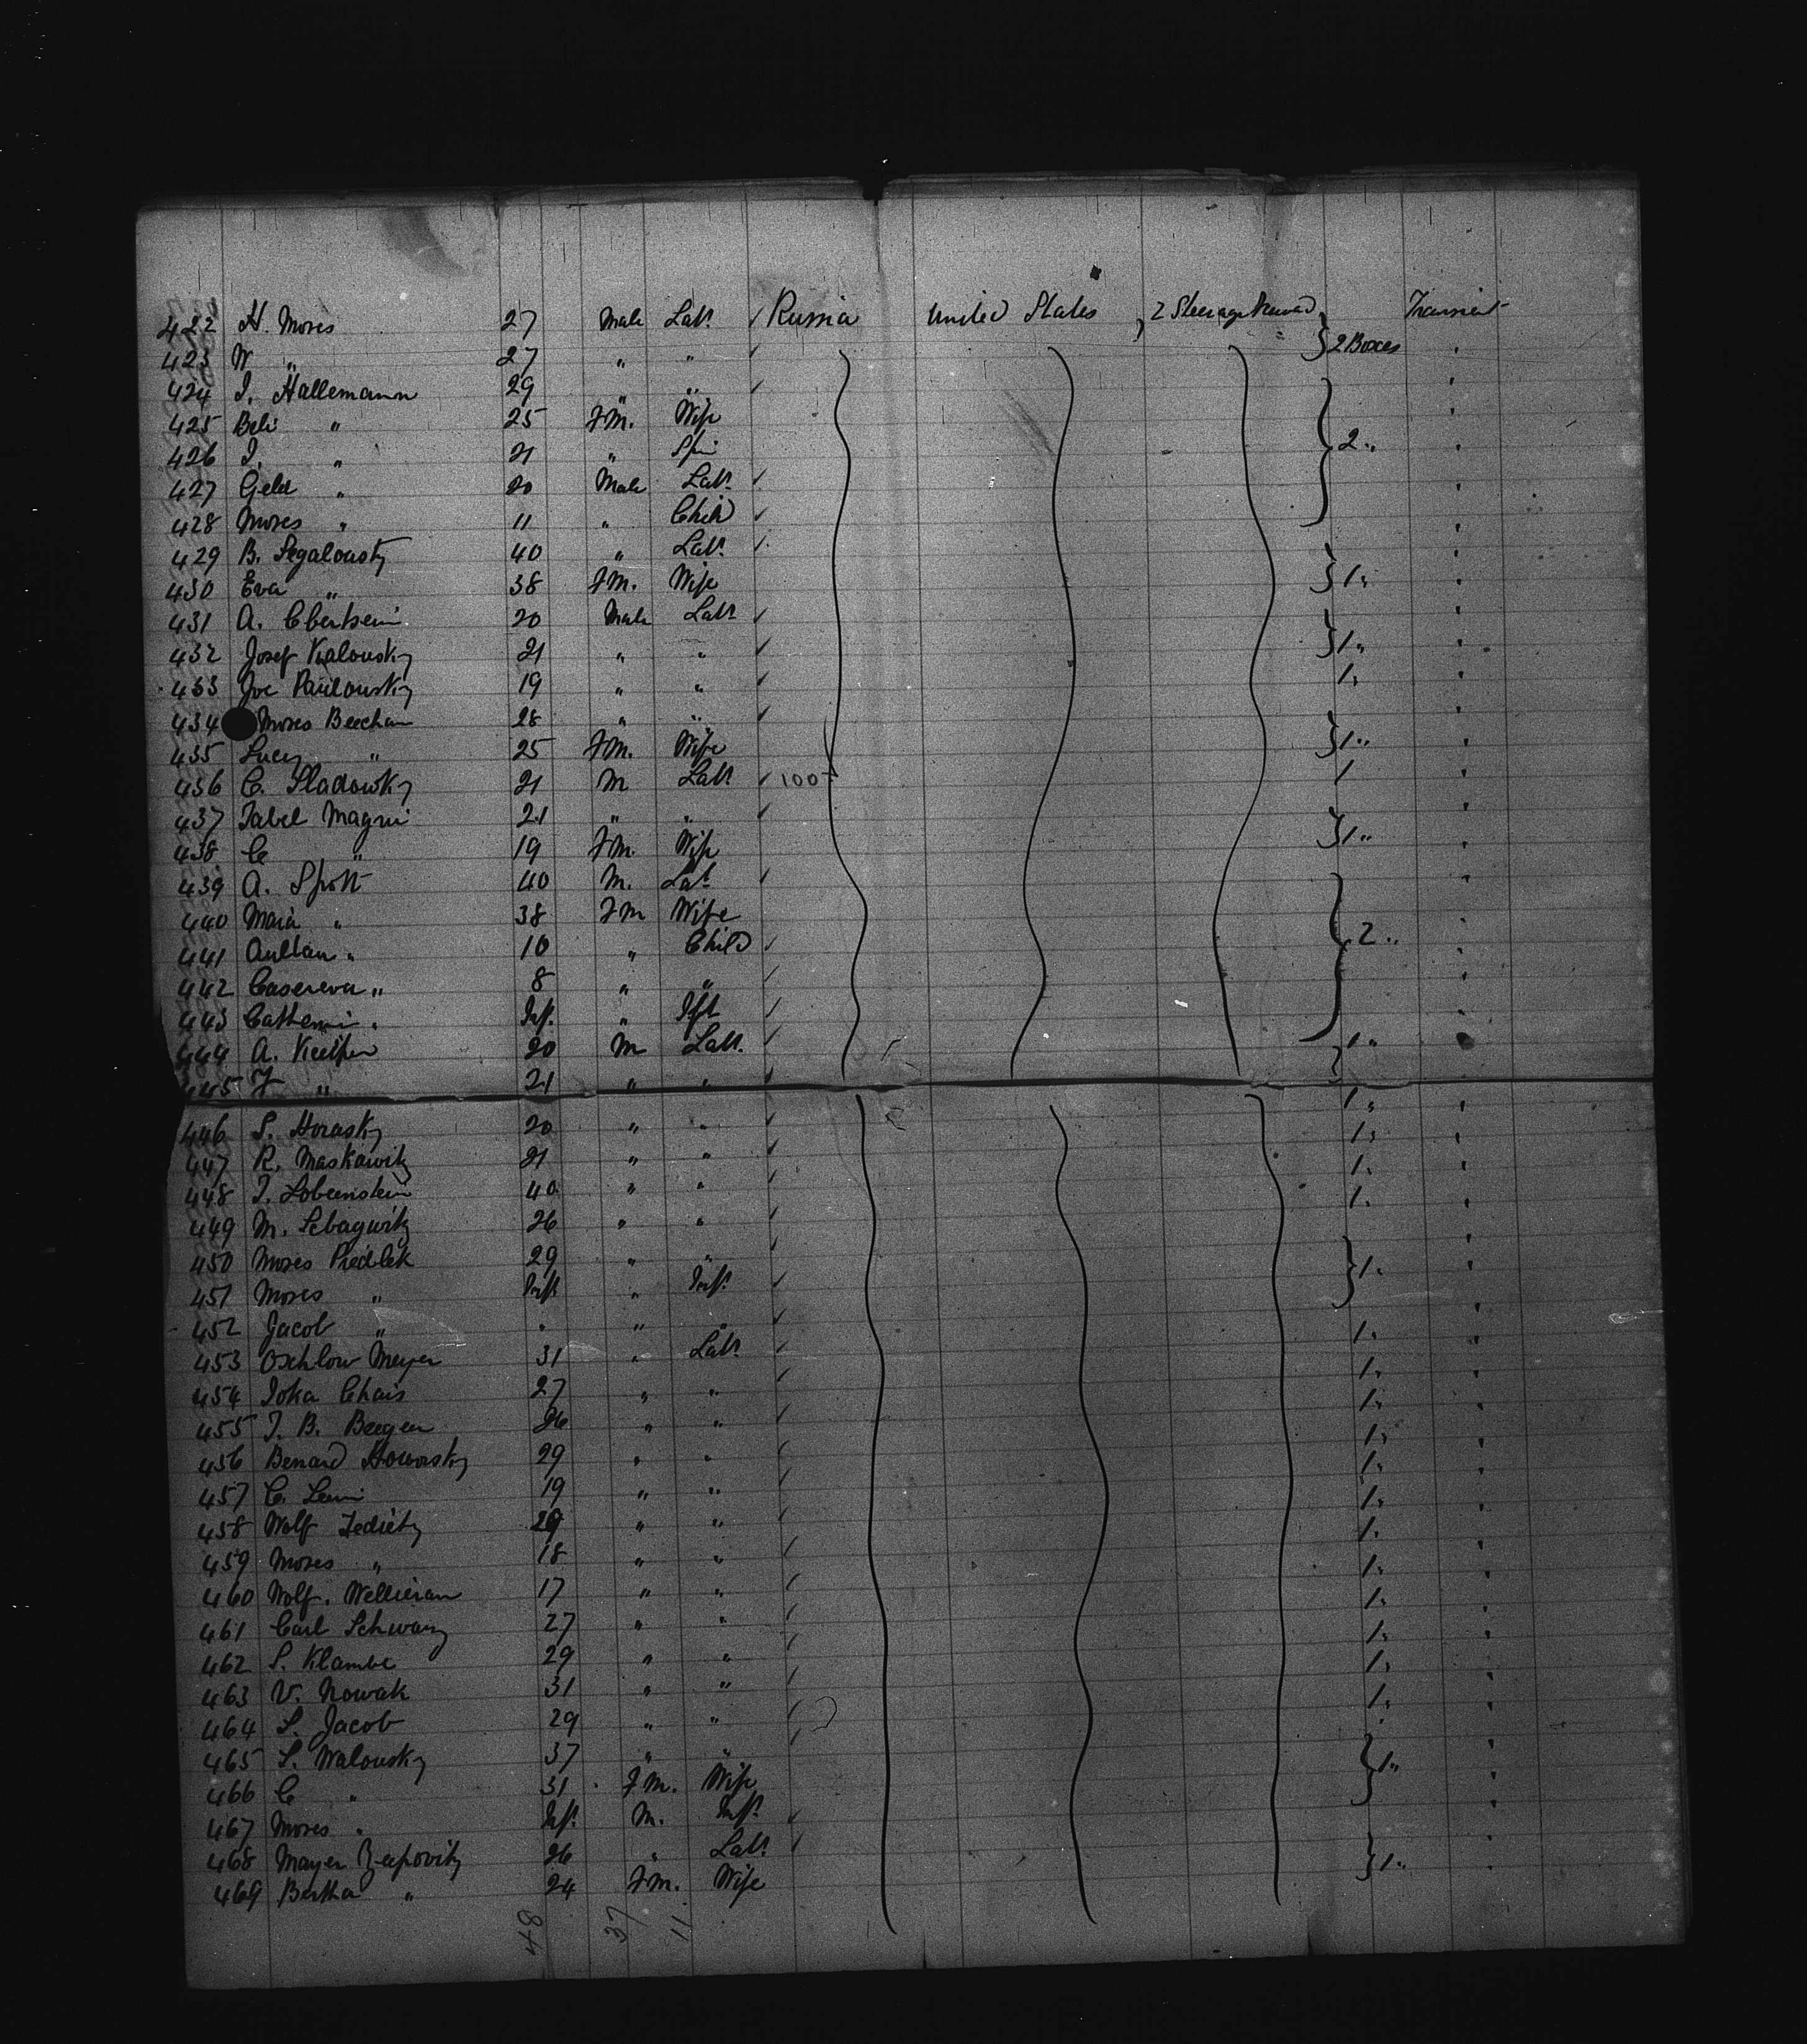 422 H. Moses 27 Male Labr. ✓ Russia United States 2 Steerage 2 Boxes Transient
423 W " 27 " " ✓ "
424 I. Hallemann 29 " " ✓ "
425 Beli " 25 FM. Wife "
426 I. " 21 " Spin 2 " "
427 Geld " 20 Male Labr. ✓ "
428 Moses " 11 " Child ✓ "
429 B. Segalousky 40 " Labr. ✓ "
430 Eva " 38 FM. Wife 1 " "
431 A. 20 Male Labr. ✓ "
432 Josef Kalousky 21 " " ✓ 1 " "
433 Joe Paulousky 19 " " ✓ 1 " "
434 Moses Beecham 28 " " ✓ "
435 Lucy " 25 FM. Wife 1 " "
436 C. Sladowky 21 M Labr. ✓ 100 1 "
437 Tabel Magni 21 " " ✓ "
438 C " 19 FM. Wife 1 " "
439 A. Spott 40 M. Labr. ✓ "
440 Maria " 38 FM Wife "
441 " 10 " Child ✓ 2 " "
442 " 8 " " ✓ "
443 " Inft. " Ift ✓ "
444 A. 20 M Labr. ✓ 1 "
445 J " 21 " " ✓
446 S. Horasky 20 " " ✓ 1 " "
447 R. Maskawitz 21 " " ✓ 1 " "
448 I. Lobeenstein 40 " " ✓ 1 " "
449 M. Sebagwitz 26 " " ✓ 1 " "
450 Moses Piedlek 29 " " ✓ "
451 Moses " Inft " Inft. ✓ 1 " "
452 Jacob " " " " ✓ "
453 Oschlow Meyer 31 " Labr. ✓ 1 " "
454 Joka Chais 27 " " ✓ 1 " "
455 J. B. Beegen 26 " " ✓ 1 " "
456 Bernard Howorsky 29 " " ✓ 1 " "
457 C. Lewi 19 " " ✓ 1 " "
458 Wolf Tedietz 29 " " ✓ 1 " "
459 Moses " 18 " " ✓ 1 " "
460 Wolf. Wellieran 17 " " ✓ 1 " "
461 Carl Schwarz 27 " " ✓ 1 " "
462 S. Klambe 29 " " ✓ 1 " "
463 V. Nowak 31 " " ✓ 1 " "
464 S. Jacob 29 " " ✓ 1 " "
465 S. Walousky 37 " " ✓ "
466 C " 31 FM. Wife 1 " "
467 Moses " Inft. M. Inft. ✓ "
468 Mayer 26 " Labr. ✓ "
469 Bertha " 24 FM. Wife 1 " "
48 37 11